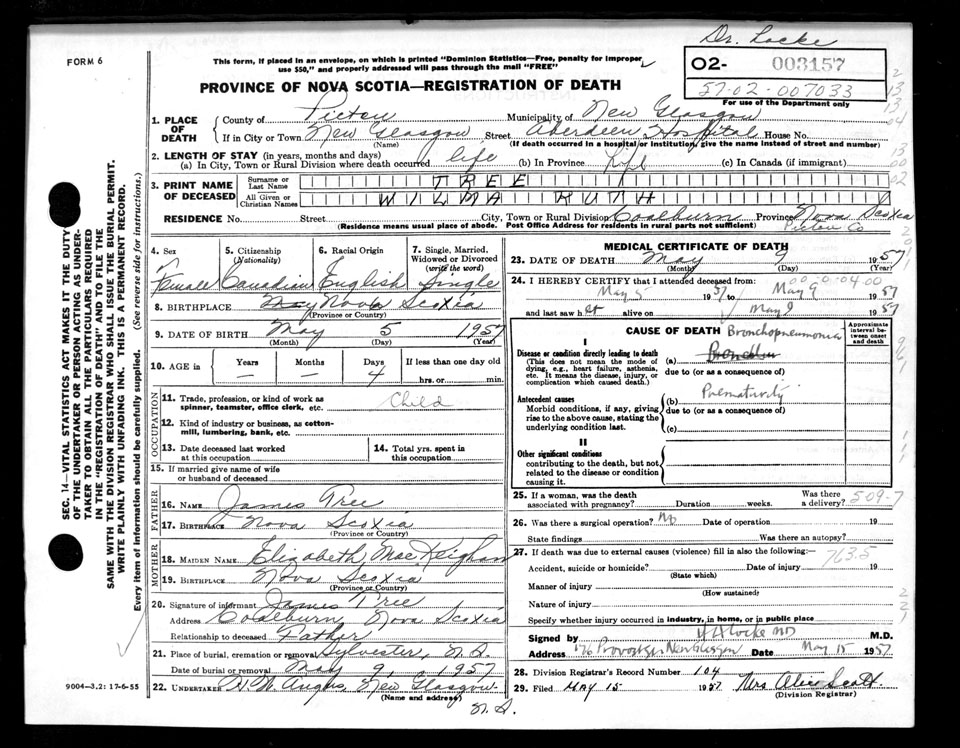 Dr. Locke
FORM 6
This form, if placed in an envelope, on which is printed "Dominion Statistics—Free, penalty for improper
use $50," and properly addressed will pass through the mail "FREE"
O2- 003157
57-02-007033
For use of the Department only
PROVINCE OF NOVA SCOTIA—REGISTRATION OF DEATH
1. PLACE OF DEATH
County of Pictou Municipality of New Glasgow
If in City or Town New Glasgow Street Aberdeen Hospital House No.
(Name) (If death occurred in a hospital or institution, give the name instead of street and number)
2. LENGTH OF STAY (in years, months and days)
(a) In City, Town or Rural Division where death occurred life (b) In Province Life (c) In Canada (if immigrant)
3. PRINT NAME OF DECEASED
Surname or Last Name TREE
All Given or Christian Names WILMA RUTH
RESIDENCE No. Street City, Town or Rural Division Coalburn Province Nova Scotia
(Residence means usual place of abode. Post Office Address for residents in rural parts not sufficient) Pictou Co
4. Sex Female
5. Citizenship (Nationality) Canadian
6. Racial Origin English
7. Single, Married, Widowed or Divorced (write the word) Single
8. BIRTHPLACE Nova Scotia
(Province or Country)
9. DATE OF BIRTH May 5 1957
(Month) (Day) (Year)
10. AGE in Years — Months — Days 4 If less than one day old hrs. or min.
OCCUPATION
11. Trade, profession, or kind of work as spinner, teamster, office clerk, etc. Child
12. Kind of industry or business, as cotton-mill, lumbering, bank, etc.
13. Date deceased last worked at this occupation
14. Total yrs. spent in this occupation
15. If married give name of wife or husband of deceased
FATHER
16. NAME James Tree
17. BIRTHPLACE Nova Scotia
(Province or Country)
MOTHER
18. MAIDEN NAME Elizabeth MacKeighan
19. BIRTHPLACE Nova Scotia
(Province or Country)
20. Signature of informant James Tree
Address Coalburn, Nova Scotia
Relationship to deceased Father
21. Place of burial, cremation or removal Sylvester, N.S.
Date of burial or removal May 9, 1957
22. UNDERTAKER New Glasgow
(Name and address) N.S.
MEDICAL CERTIFICATE OF DEATH
23. DATE OF DEATH May 9 1957
(Month) (Day) (Year)
24. I HEREBY CERTIFY that I attended deceased from: 00-50-04-00
May 5 1957 to May 9 1957
and last saw her alive on May 9 1957
CAUSE OF DEATH
Approximate interval between onset and death
I
Disease or condition directly leading to death
(This does not mean the mode of dying, e.g., heart failure, asthenia, etc. It means the disease, injury, or complication which caused death.)
(a) Bronchopneumonia
due to (or as a consequence of)
Antecedent causes
Morbid conditions, if any, giving rise to the above cause, stating the underlying condition last.
(b) Prematurity
due to (or as a consequence of)
(c)
II
Other significant conditions
contributing to the death, but not related to the disease or condition causing it.
25. If a woman, was the death associated with pregnancy? Duration weeks. Was there a delivery? 509-7
26. Was there a surgical operation? No Date of operation 19
State findings Was there an autopsy?
27. If death was due to external causes (violence) fill in also the following:— 763.5
Accident, suicide or homicide? Date of injury 19
(State which)
Manner of injury
(How sustained)
Nature of injury
Specify whether injury occurred in industry, in home, or in public place
Signed by Locke MD M.D.
Address 176 Provost St. New Glasgow Date May 15 1957
28. Division Registrar's Record Number 104
29. Filed MAY 15 1957 Mrs Alice Scott
(Division Registrar)
SEC. 14—VITAL STATISTICS ACT MAKES IT THE DUTY
OF THE UNDERTAKER OR PERSON ACTING AS UNDER-
TAKER TO OBTAIN ALL THE PARTICULARS REQUIRED
IN THE "REGISTRATION OF DEATH" AND TO FILE THE
SAME WITH THE DIVISION REGISTRAR WHO SHALL ISSUE THE BURIAL PERMIT.
WRITE PLAINLY WITH UNFADING INK. THIS IS A PERMANENT RECORD.
Every item of information should be carefully supplied. (See reverse side for instructions.)
9004-3.2: 17-6-55